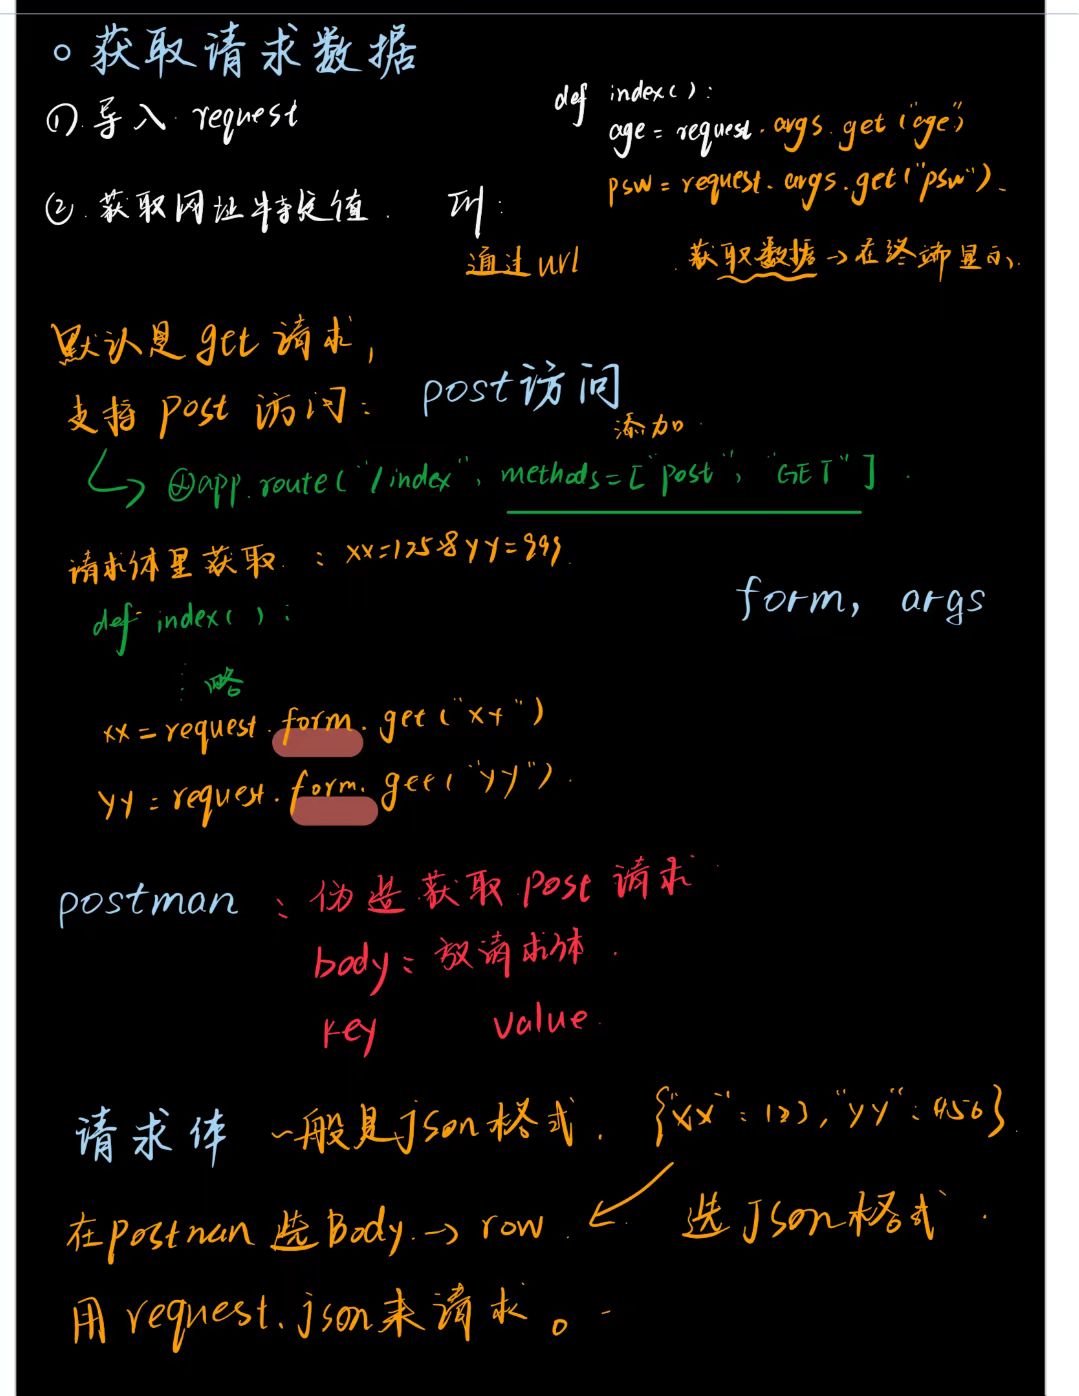 获取请求数据
① 导入 request
def index():
age = request.args.get("age")
psw = request.args.get("psw").
② 获取网址特定值.
通过url
获取数据→在终端显示.
默认是get请求,
支持post访问:
post访问
添加
↳ @app.route("/index", methods=["post", "GET"].
请求体里获取: xx=125&yy=999
form, args
def index():
略
xx = request.form.get("xx")
yy = request.form.get("yy").
postman : 伪造获取post请求
body: 放请求体.
key value.
请求体 一般是json格式. {"xx": 123, "yy": 456}
在postman选Body.→row. ← 选Json格式.
用request.json来请求。